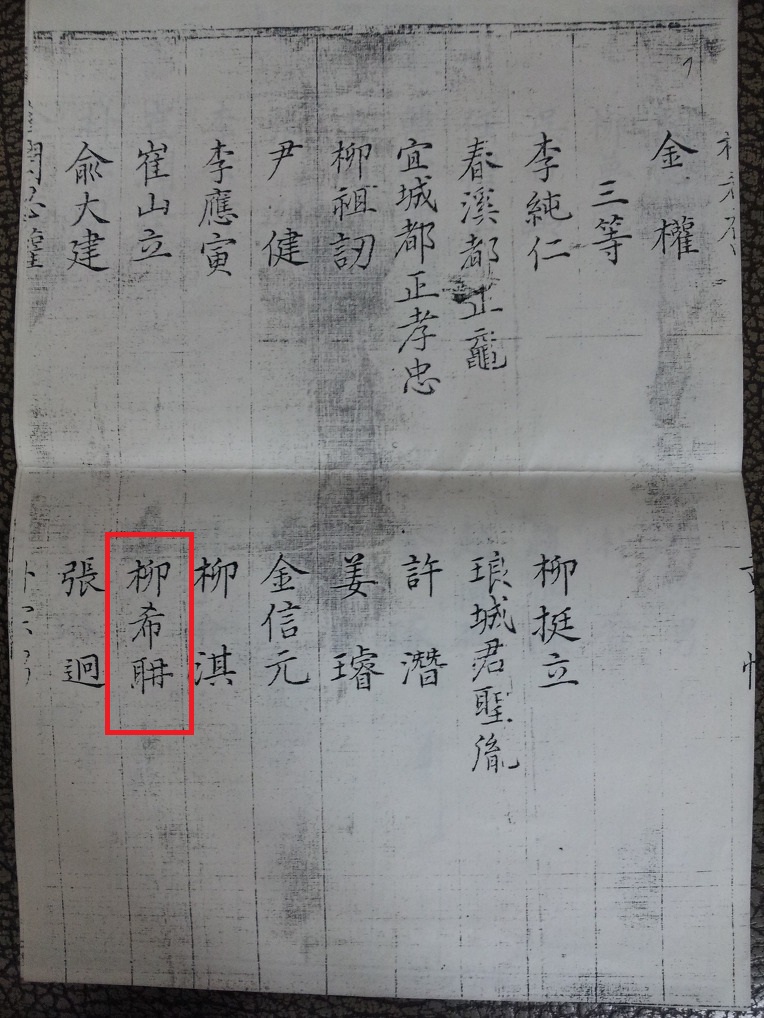 金權
三等
李純仁
柳挺立
春溪都正
琅城君聖胤
宜城都正孝忠
許潛
柳祖訒
姜璿
尹健
金信元
李應寅
柳淇
崔山立
柳希聃
兪大建
張逈